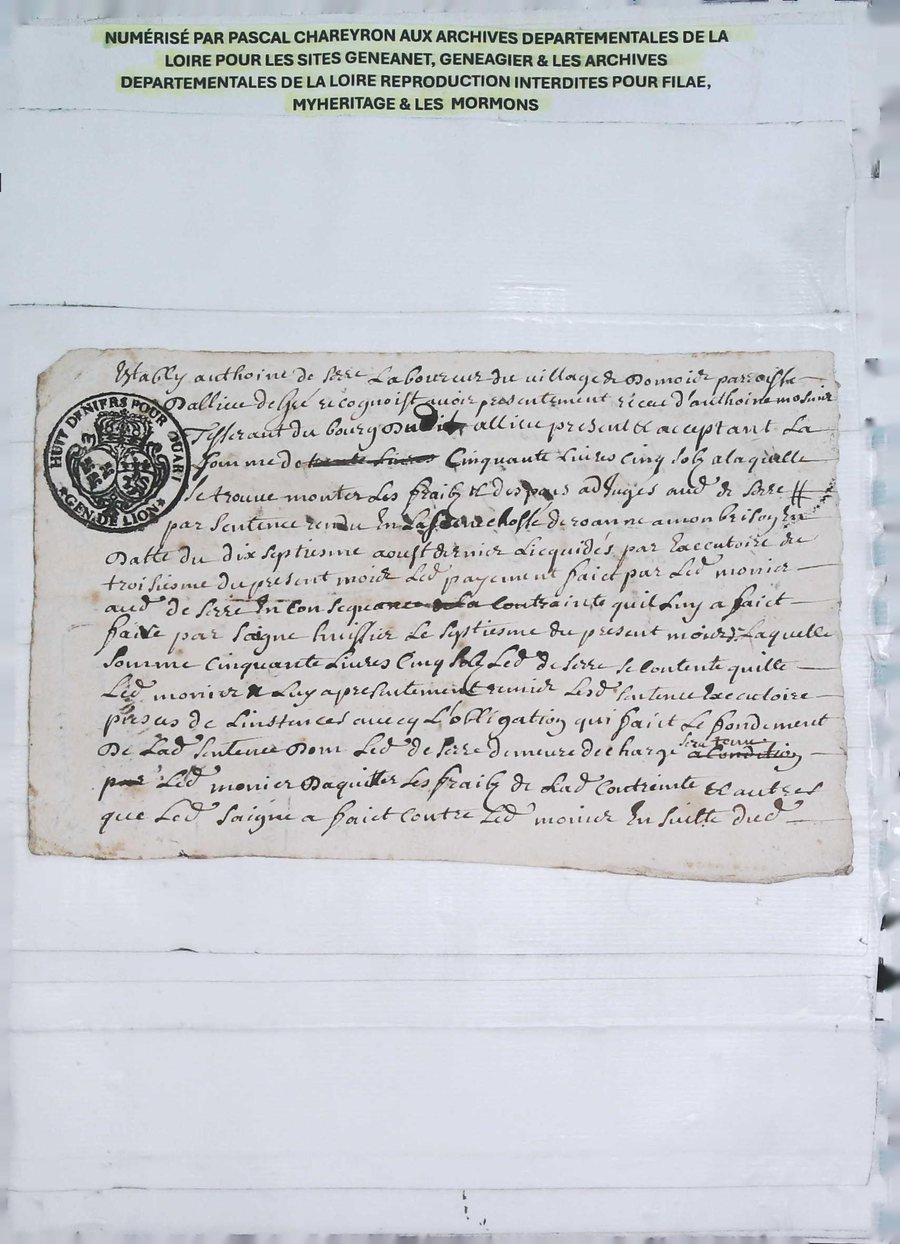 NUMÉRISÉ PAR PASCAL CHAREYRON AUX ARCHIVES DEPARTEMENTALES DE LA
LOIRE POUR LES SITES GENEANET, GENEAGIER & LES ARCHIVES
DEPARTEMENTALES DE LA LOIRE REPRODUCTION INTERDITES POUR FILAE,
MYHERITAGE & LES MORMONS
HUIT DENIERS POUR QUART
GEN. DE LION
Estably anthoine de serre Laboureur du village de parroisse
Dallieu recognoist avoir presentement receu d'anthoine monier
Tisserant du bourg Dudit allieu present & acceptant La
somme de trente Livres Cinquante Livres Cinq solz a laquelle
se trouve monter Les fraitz & despans adjugés aud de serre
par sentence rendu En La de roanne a monbrison En
Datte du dix septiesme aoust dernier Licquidés par Executoire du
troisiesme du present mois Led payement faict par Led monier
aud de serre En consequance de La contrainte quil Luy a faict
faire par saigne huissier Le septiesme du present mois Laquelle
somme Cinquante Livres Cinq Led de serre se contente quitte
Led monier & Luy a presentement remier Lesd sentence Executoire
pieses de Linstances avecq L'obligation qui faict Le fondement
De Lad sentence Dont Led de serre demeure decharge sera tenu a Condition
par Led monier Daquitter Les fraitz de Lad Contreinte & autres
que Led Saigne a faict contre Led monier En suitte dud